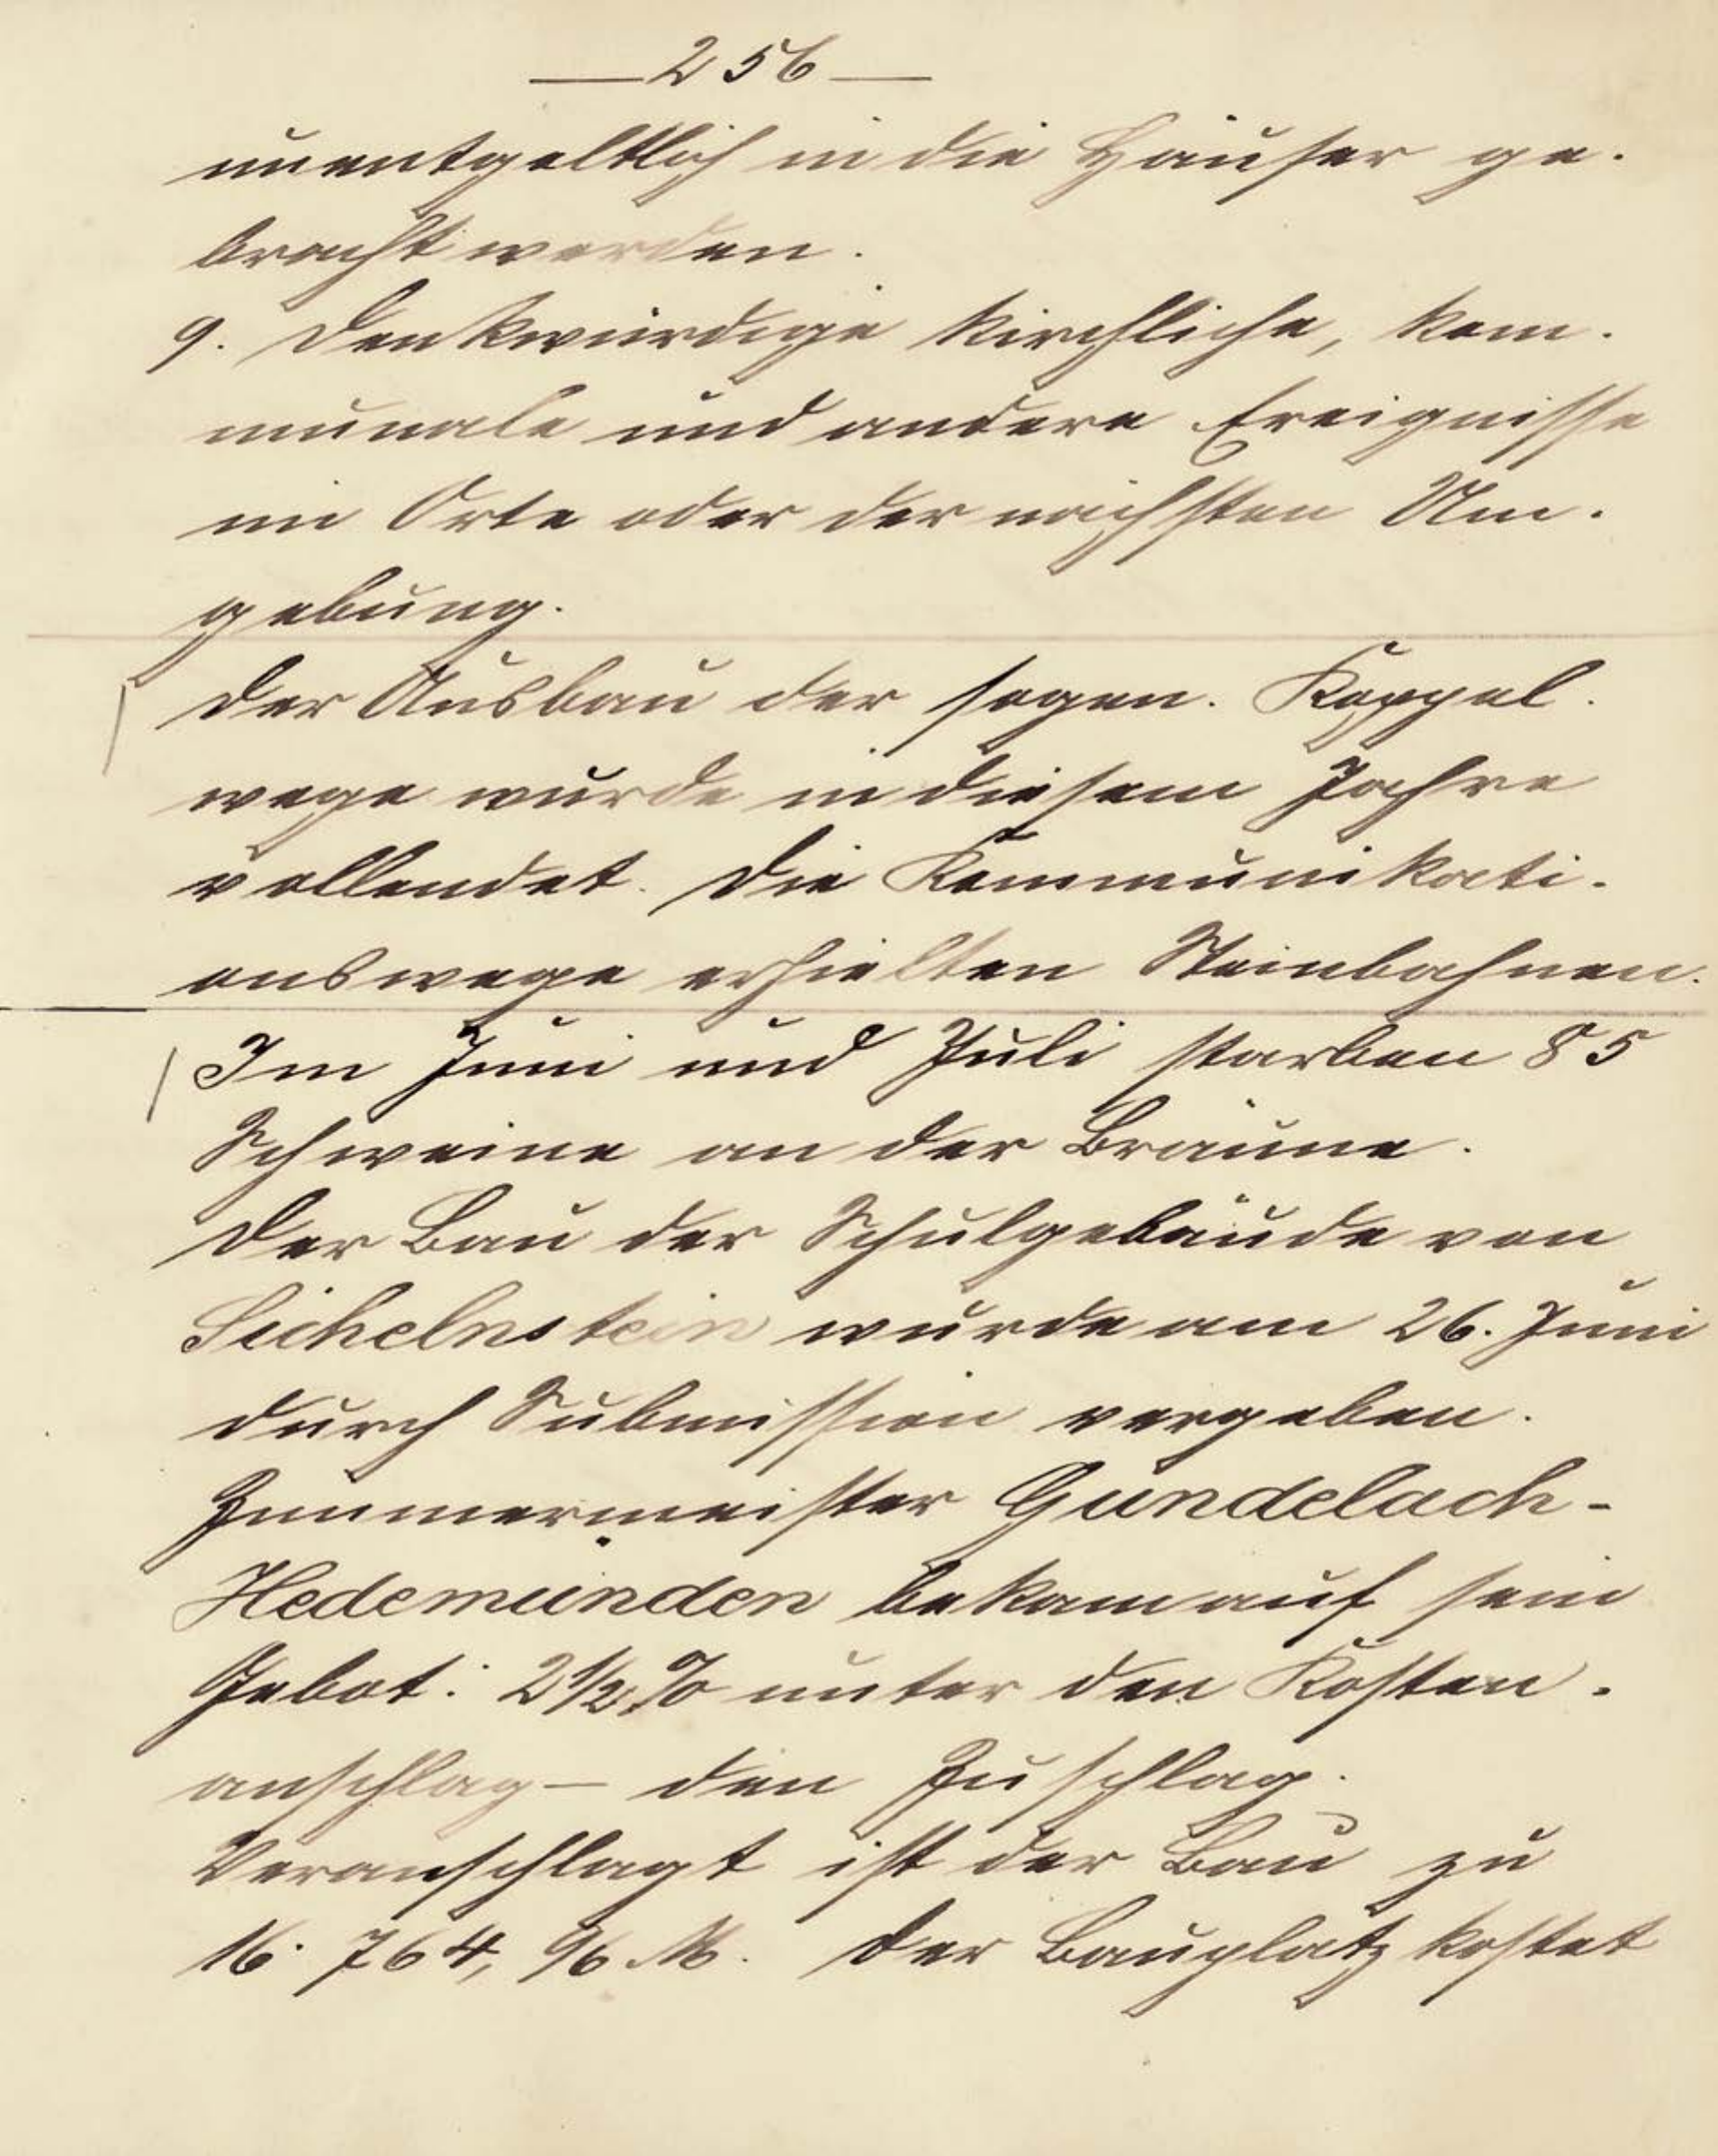 — 256 —
unentgeltlich in die Häuser ge-
bracht werden.
9. Denkwürdige kirchliche, kom-
munale und andere Ereignisse
im Orte oder der nächsten Um-
gebung.
Der Ausbau der sogen. Koppel-
wege wurde in diesem Jahre
vollendet. Die Kommunikati-
onswege erhielten Steinbahnen.
Im Juni und Juli starben 85
Schweine an der Bräune.
Der Bau der Schulgebäude von
Sichelnstein wurde am 26. Juni
durch Submission vergeben.
Zimmermeister Gundelach-
Hedemünden bekam auf sein
Gebot: 2½% unter den Kosten-
anschlag – den Zuschlag.
Veranschlagt ist der Bau zu
16.764,96 M. Der Bauplatz kostet